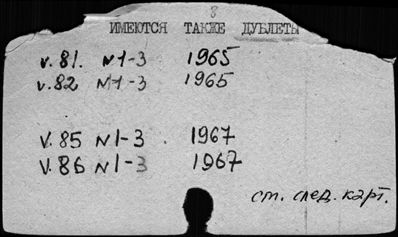 8
ИМЕЮТСЯ ТАКЖЕ ДУБЛЕТЫ
v.81. N1-3 1965
v.82 N1-3 1965
v.85 N1-3 1967
v.86 N1-3 1967
ст. след. карт.